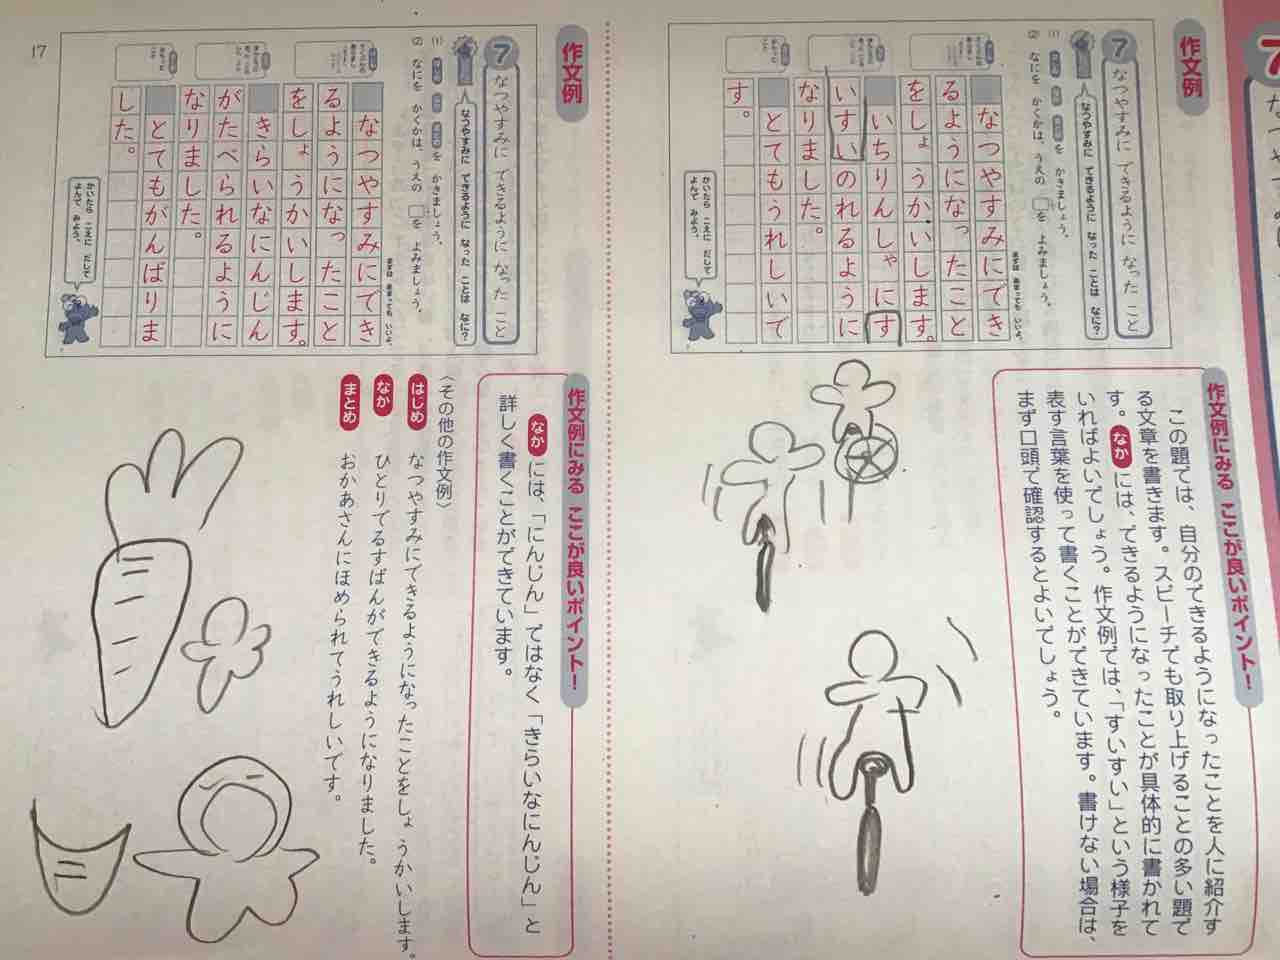 作文例
7 なつやすみに できるように なった こと
なつやすみに できるように なった ことは なに?
を かきましょう。
(2) なにを かくかは、うえの □を よみましょう。
なつやすみにでき
るようになったこと
をしょうかいします。
いちりんしゃにす
いすいのれるように
なりました。
とてもうれしいで
す。
かいたら こえに だして
よんで みよう。
作文例にみる ここが良いポイント!
この題では、自分のできるようになったことを人に紹介す
る文章を書きます。スピーチでも取り上げることの多い題で
す。なかには、できるようになったことが具体的に書かれて
いればよいでしょう。作文例では、「すいすい」という様子を
表す言葉を使って書くことができています。書けない場合は、
まず口頭で確認するとよいでしょう。
作文例
7 なつやすみに できるように なった こと
なつやすみに できるように なった ことは なに?
を かきましょう。
(2) なにを かくかは、うえの □を よみましょう。
なつやすみにでき
るようになったこと
をしょうかいします。
きらいなにんじん
がたべられるように
なりました。
とてもがんばりま
した。
かいたら こえに だして
よんで みよう。
作文例にみる ここが良いポイント!
なかには、「にんじん」ではなく「きらいなにんじん」と
詳しく書くことができています。
〈その他の作文例〉
はじめ なつやすみにできるようになったことをしょうかいします。
なか ひとりでるすばんができるようになりました。
まとめ おかあさんにほめられてうれしいです。
17